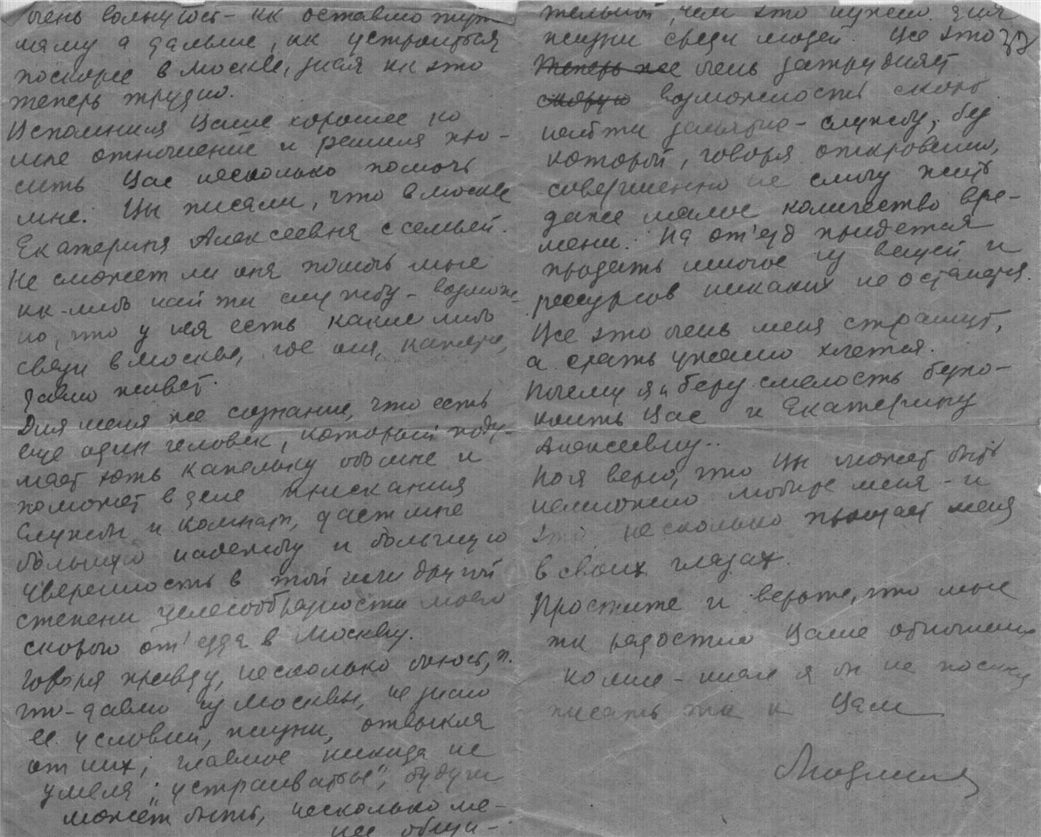 очень волнуюсь - кк оставлю тут
маму а дальше, кк устроиться
поскорее в Москве, зная кк это
теперь трудно.
Вспомнила Ваше хорошее ко
мне отношение и решила про-
сить Вас несколько помочь
мне. Вы писали, что в Москве
Екатерина Алексеевна с семьей.
Не сможет ли она помочь мне
кк-либо найти службу - возмож-
но, что у нея есть какие либо
связи в Москве, где она, кажется,
давно живет.
Для меня же сознание, что есть
еще один человек, который поду-
мает хоть капельку обо мне и
поможет в деле приискания
службы и комнаты, даст мне
большую надежду и большую
уверенность в той или другой
степени целесообразности моего
скорого от'езда в Москву.
Говоря правду, несколько боюсь, п.
что - давно из Москвы, не знаю
ее условий, жизни, отвыкла
от них; главное никогда не
умела "устраиваться", будучи
может быть, несколько ме-
нее общи-
тельной, чем это нужно для
жизни среди людей. Все это
Теперь же очень затрудняет
скорую возможность скоро
найти занятие - службу, без
которой, говоря откровенно,
совершенно не смогу жить
даже малое количество вре-
мени. На от'езд придется
продать многое из вещей и
рессурсов никаких не останется.
Все это очень меня страшит,
а ехать ужасно хочется.
Почему я и беру смелость беспо-
коить Вас и Екатерину
Алексеевну..
Но я верю, что Вы может быть
немножко любите меня - и
это несколько прощает меня
в своих глазах.
Простите и верьте, что мне
тк радостно Ваше отношение
ко мне - иначе я бы не посмела
писать тк к Вам
Людмила